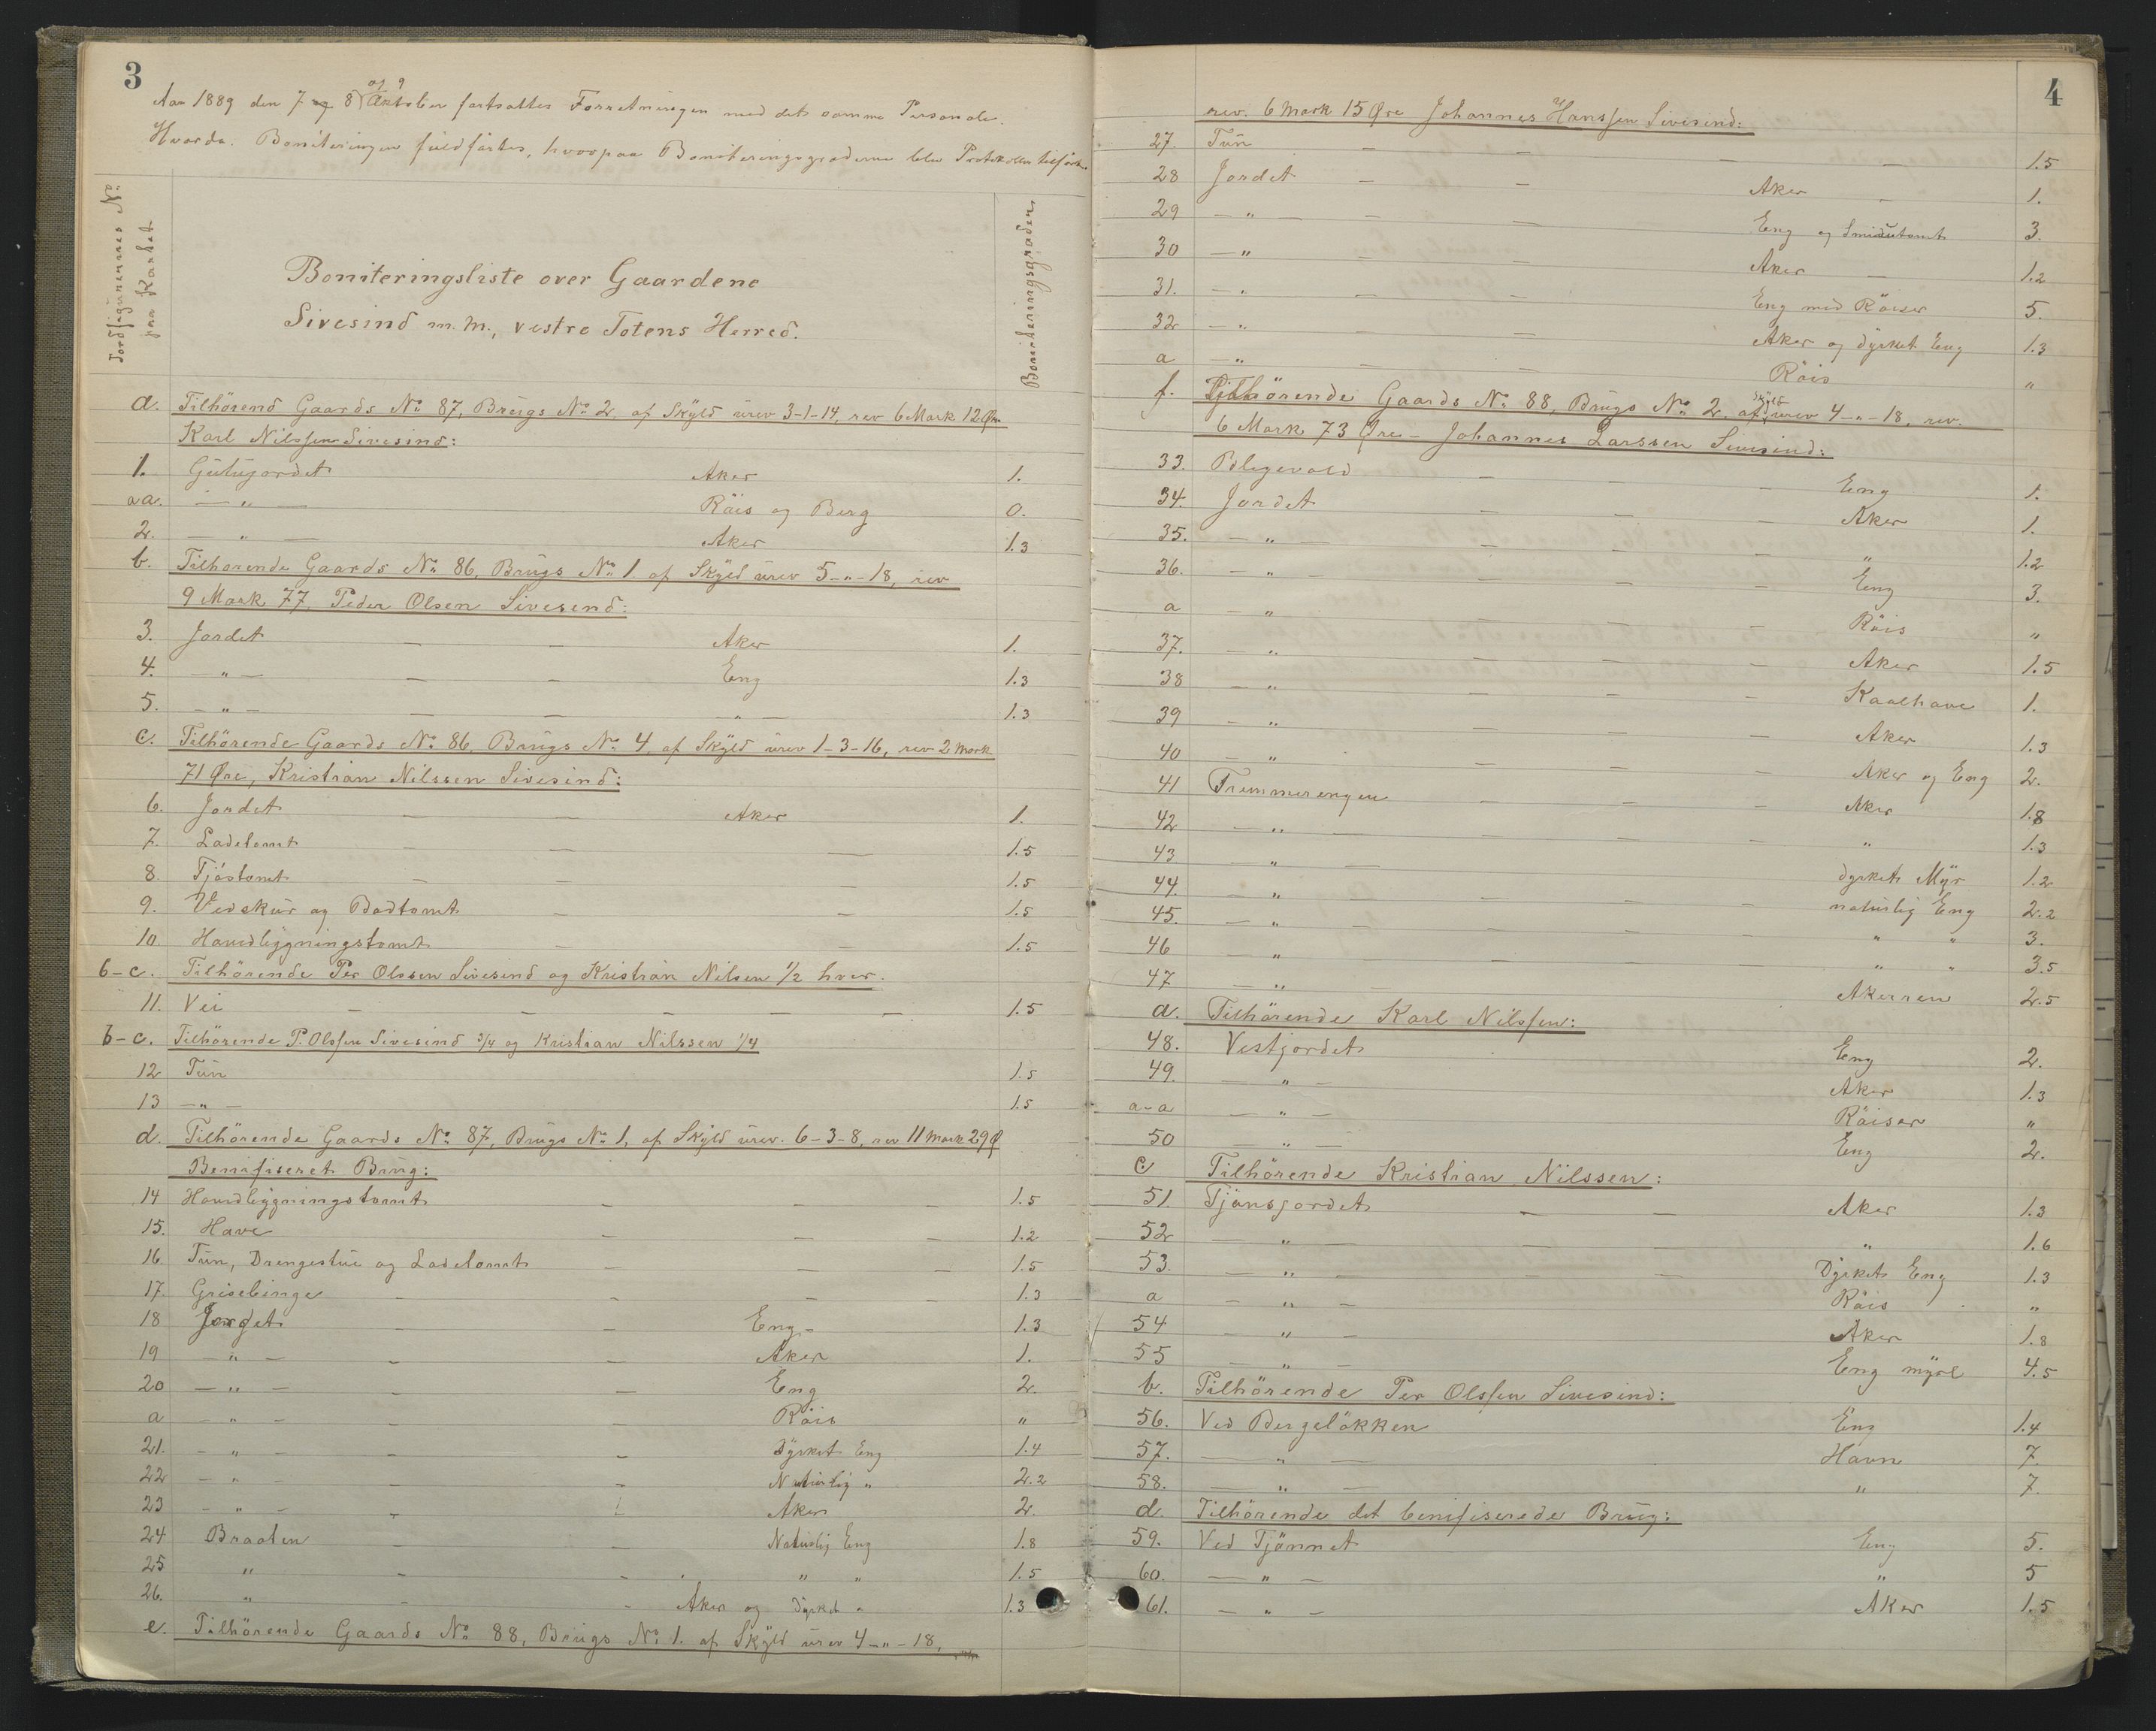 3
Aar 1889 den 7 og 8 og 9 Oktober fortsattes Forretningen med det samme Personale.
Hvorda. Boniteringen fuldførtes, hvorpaa Boniteringsgraderne blev Protokollen tilført.
Jordfigurernes No. paa Kartet.
Boniteringsgraden
Boniteringsliste over Gaardene
Sivesind m. m., vestre Totens Herred.
a. Tilhörend Gaards No. 87, Brugs No. 2, af Skyld urev 3-1-14, rev 6 Mark 12 Øre
Karl Nilssen Sivesind:
1. Gutujordet Aker 1.
aa. — " — Röis og Berg 0.
2. — " — Aker 1.3
b. Tilhörende Gaards No. 86, Brugs No. 1 af Skyld urev 5-"-18, rev
9 Mark 77, Peder Olsen Sivesend:
3. Jordet — — Aker 1.
4. — " — — — Eng 1.3
5. — " — — — — " — 1.3
c. Tilhörende Gaards No. 86, Brugs No. 4, af Skyld urev 1-3-16, rev 2 Mark
71 Øre, Kristian Nilssen Sivesind:
6. Jordet — — Aker 1.
7. Ladetomt — — — 1.5
8. Fjöstomt — — — 1.5
9. Vedskur og Bodtomt — — 1.5
10. Hovedbygningstomt — — 1.5
b-c. Tilhörende Per Olssen Sivesind og Kristian Nilsen 1/2 hver.
11. Vei — — — — — 1.5
b-c. Tilhörende P. Olssen Sivesind 3/4 og Kristian Nilssen 1/4
12 Tun 1.5
13 — " — 1.5
d. Tilhörende Gaards No. 87, Brugs No. 1, af Skyld urev. 6-3-8, rev 11 Mark 29 Ø
Benifiseret Brug:
14 Hovedbygningstomt — — — 1.5
15. Have — — — 1.2
16 Tun, Drengestue og Ladetomt — — — 1.5
17. Grisebinge — — — — 1.3
18 Jordet — — Eng — 1.3
19 — " — — — Aker 1.
20 — " — — — Eng 2.
a — " — — — Röis "
21. — " — — — Dyrket Eng 1.4
22 — " — — Naturlig " 2.2
23 — " — — Aker 2.
24 Braaten — — Naturlig Eng 1.8
25 " — — " " 1.5
26. " — — Aker og Dyrket " 1.3
e. Tilhörende Gaards No. 88, Brugs No. 1. af Skyld urev 4-"-18,
4
rev. 6 Mark 15 Øre Johannes Hanssen Sivesind:
27. Tun — — — — 1.5
28 Jordet — — Aker — 1.
29 — " — — — Eng og Smiutomt 3.
30 — " — — Aker — 1.2
31. — " — — Eng med Röiser 5.
32 — " — — Aker og dyrket Eng 1.3
a — " — — Röis "
f. Tilhörende Gaards No. 88, Brugs No. 2. af Skyld urev 4-"-18, rev.
6 Mark 73 Øre - Johannes Larssen Sivesind:
33. Blegevold — — — Eng 1.
34. Jordet — — — Aker 1.
35. — " — — — — " 1.2
36. — " — — — — Eng 3.
a — " — — — Röis "
37. — " — — — Aker 1.5
38 — " — — — Kaalhave 1.
39 — " — — — Aker 1.3
40 — " — — — Aker og Eng 2.
41 Fremmerengen — — — Aker 1.8
42 — " — — — — " 1.3
43 — " — — — — dyrket Myr 1.2
44. — " — — — naturlig Eng 2.2
45. — " — — — " " 3.
46 — " — — — " " 3.5
47 — " — Akerren 2.5
a. Tilhörende Karl Nilssen:
48. Vestjordet Eng 2.
49. — " — Aker 1.3
a-a — " — Röiser "
50 — " — Eng 2.
c. Tilhörende Kristian Nilssen:
51. Tjönsjordet — — Aker 1.3
52 — " — — — " 1.6
53. — " — — — Dyrket Eng 1.3
a — " — Röis "
54 — " — Aker 1.8
55 — " — Eng myrl 4.5
b. Tilhörende Per Olssen Sivesind:
56. Ved Bergelökken Eng 1.4
57. — " — Havn 7.
58. — " — " 7.
d. Tilhörende det benifiserede Brug:
59. Ved Tjönnet Eng 5.
60. — " — " 5
61. — " — Aker 1.5